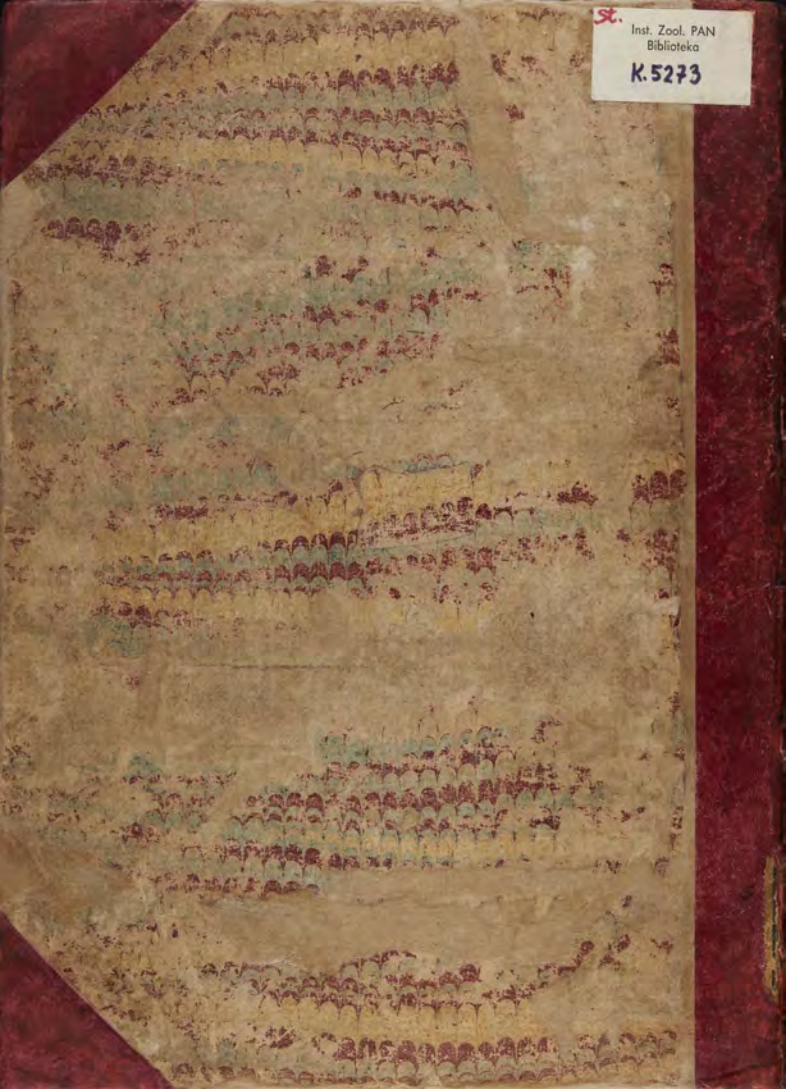 St.
Inst. Zool. PAN
Biblioteka
K.5273